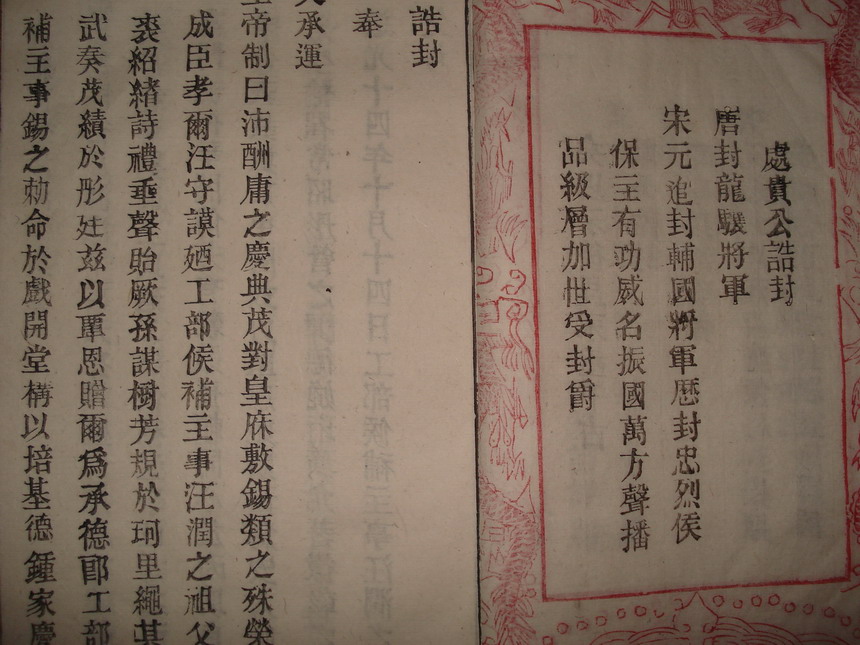 處貴公誥封
唐封龍驤將軍
宋元追封輔國將軍歷封忠烈侯
保主有功威名振國萬方聲播
品級層加世受封爵
誥封
奉
天承運
皇帝制曰沛酬庸之慶典茂對皇庥敷錫類之殊榮
成臣孝爾汪守謨廼工部候補主事汪潤之祖父
裘紹緒詩禮垂聲貽厥孫謀樹芳規於珂里繩其
武奏茂績於彤廷茲以覃恩贈爾爲承德郎工部
補主事錫之勅命於戲開堂構以培基德鍾家慶